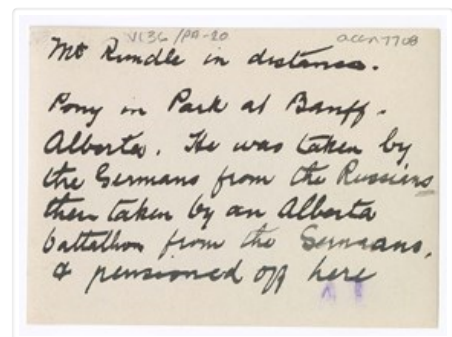 V136 /PA-20
accn 7708
Mt Rundle in distance.
Pony in Park at Banff.
Alberta. He was taken by
the Germans from the Russians
then taken by an Alberta
battalhon from the Germans,
& pensioned off here